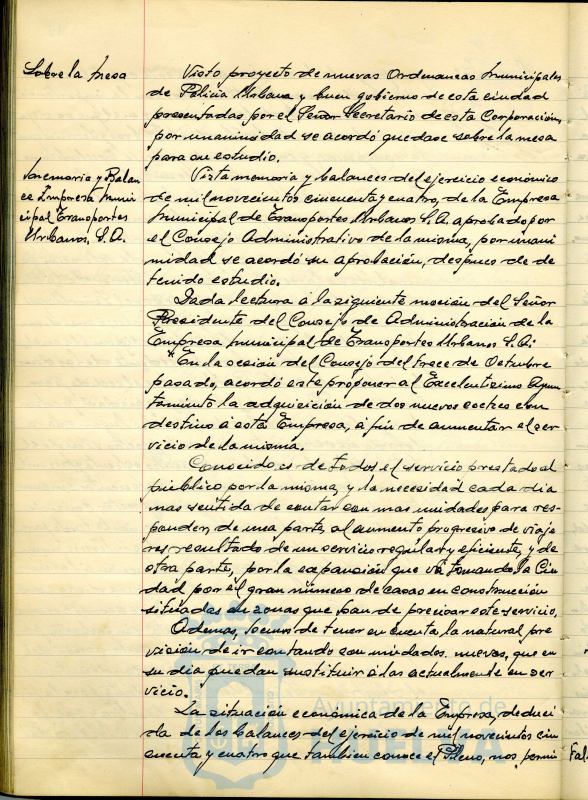 Sobre la mesa
Visto proyecto de nuevas Ordenanzas Municipales
de Policia Urbana y buen gobierno de esta ciudad
presentadas por el Señor Secretario de esta Corporación,
por unanimidad se acordó quedase sobre la mesa
para su estudio.
Memoria y Balan
ce Empresa Muni
cipal Transportes
Urbanos, S.A.
Vista memoria y balances del ejercicio económico
de mil novecientos cincuenta y cuatro, de la Empresa
Municipal de Transportes Urbanos S.A. aprobado por
el Consejo Administrativo de la misma, por unani
midad se acordó su aprobación, despues de de
tenido estudio.
Dada lectura á la siguiente moción del Señor
Presidente del Consejo de Administración de la
Empresa Municipal de Transportes Urbanos S.A:
"En la sesión del Consejo del trece de Octubre
pasado, acordó este proponer al Excelentisimo Ayun
tamiento la adquisición de dos nuevos coches con
destino á esta Empresa, á fin de aumentar el ser
vicio de la misma.
Conocido es de todos el servicio prestado al
público por la misma, y la necesidad cada dia
mas sentida de contar con mas unidades para res-
ponder, de una parte, al aumento progresivo de viaje
ros, resultado de un servicio regular y eficiente, y de
otra parte, por la expansión que vá tomando la Ciu
dad por el gran número de casas en construcción
situadas en zonas que han de precisar este servicio.
Ademas, hemos de tener en cuenta la natural pre
visión de ir contando con unidades nuevas, que en
su dia puedan sustituir á las actualmente en ser
vicio.
La situación económica de la Empresa, deduci
da de los balances del ejercicio de mil novecientos cin
cuenta y cuatro que tambien conoce el Pleno, nos permi
Fal
Ayuntamiento de